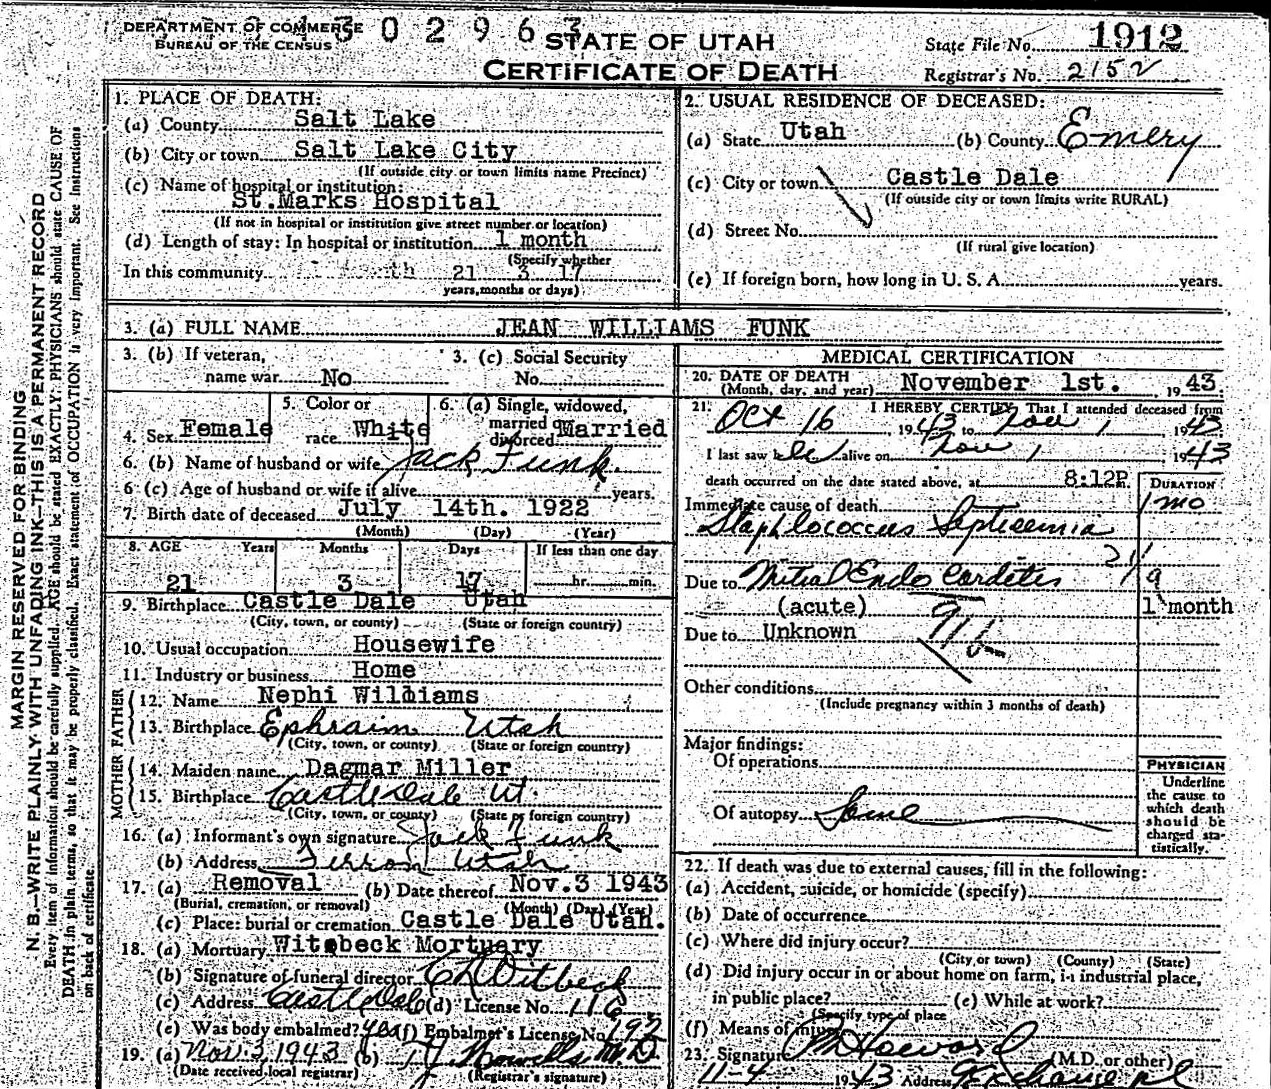 DEPARTMENT OF COMMERCE
BUREAU OF THE CENSUS
302963
STATE OF UTAH
CERTIFICATE OF DEATH
State File No. 1912
Registrar's No. 2152
MARGIN RESERVED FOR BINDING
N. B.—WRITE PLAINLY WITH UNFADING INK—THIS IS A PERMANENT RECORD
Every item of information should be carefully supplied. AGE should be stated EXACTLY. PHYSICIANS should state CAUSE OF
DEATH in plain terms, so that it may be properly classified. Exact statement of OCCUPATION is very important. See Instructions
on back of certificate.
1. PLACE OF DEATH:
(a) County Salt Lake
(b) City or town Salt Lake City
(If outside city or town limits name Precinct)
(c) Name of hospital or institution:
St.Marks Hospital
(If not in hospital or institution give street number or location)
(d) Length of stay: In hospital or institution 1 month
(Specify whether
In this community 21 3 17
years, months or days)
2. USUAL RESIDENCE OF DECEASED:
(a) State Utah (b) County Emery
(c) City or town Castle Dale
(If outside city or town limits write RURAL)
(d) Street No.
(If rural give location)
(e) If foreign born, how long in U. S. A. years.
3. (a) FULL NAME JEAN WILLIAMS FUNK
3. (b) If veteran,
name war No
3. (c) Social Security
No.
4. Sex Female
5. Color or
race White
6. (a) Single, widowed,
married or
divorced Married
6. (b) Name of husband or wife Jack Funk
6 (c) Age of husband or wife if alive years.
7. Birth date of deceased July 14th. 1922
(Month) (Day) (Year)
8. AGE Years Months Days If less than one day
21 3 17 hr. min.
9. Birthplace Castle Dale Utah
(City, town, or county) (State or foreign country)
10. Usual occupation Housewife
11. Industry or business Home
FATHER
12. Name Nephi Williams
13. Birthplace Ephraim Utah
(City, town, or county) (State or foreign country)
MOTHER
14. Maiden name Dagmar Miller
15. Birthplace Castle Dale Ut.
(City, town, or county) (State or foreign country)
16. (a) Informant's own signature Jack Funk
(b) Address Ferron Utah
17. (a) Removal (b) Date thereof Nov.3 1943
(Burial, cremation, or removal) (Month) (Day) (Year)
(c) Place: burial or cremation Castle Dale Utah.
18. (a) Mortuary Witbeck Mortuary
(b) Signature of funeral director Witbeck
(c) Address Castle Dale (d) License No. 116
(e) Was body embalmed? yes (f) Embalmer's License No. 192
19. (a) Nov. 3, 1943 (b) M.D.
(Date received local registrar) (Registrar's signature)
MEDICAL CERTIFICATION
20. DATE OF DEATH
(Month, day, and year) November 1st. 1943.
21. I HEREBY CERTIFY, That I attended deceased from
Oct 16, 1943 to Nov 1, 1943
I last saw her alive on Nov 1, 1943
death occurred on the date stated above, at 8:12P.
DURATION
Immediate cause of death 1 mo
Staphlococcus Septicemia
Due to Mitral Endocardetes
(acute) 1 month
Due to Unknown
Other conditions
(Include pregnancy within 3 months of death)
Major findings:
Of operations
Of autopsy Same
PHYSICIAN
Underline
the cause to
which death
should be
charged sta-
tistically.
22. If death was due to external causes, fill in the following:
(a) Accident, suicide, or homicide (specify)
(b) Date of occurrence
(c) Where did injury occur?
(City or town) (County) (State)
(d) Did injury occur in or about home on farm, in industrial place,
in public place? (e) While at work?
(Specify type of place
(f) Means of injury
23. Signature Howard (M.D. or other)
11-4 1943 Address